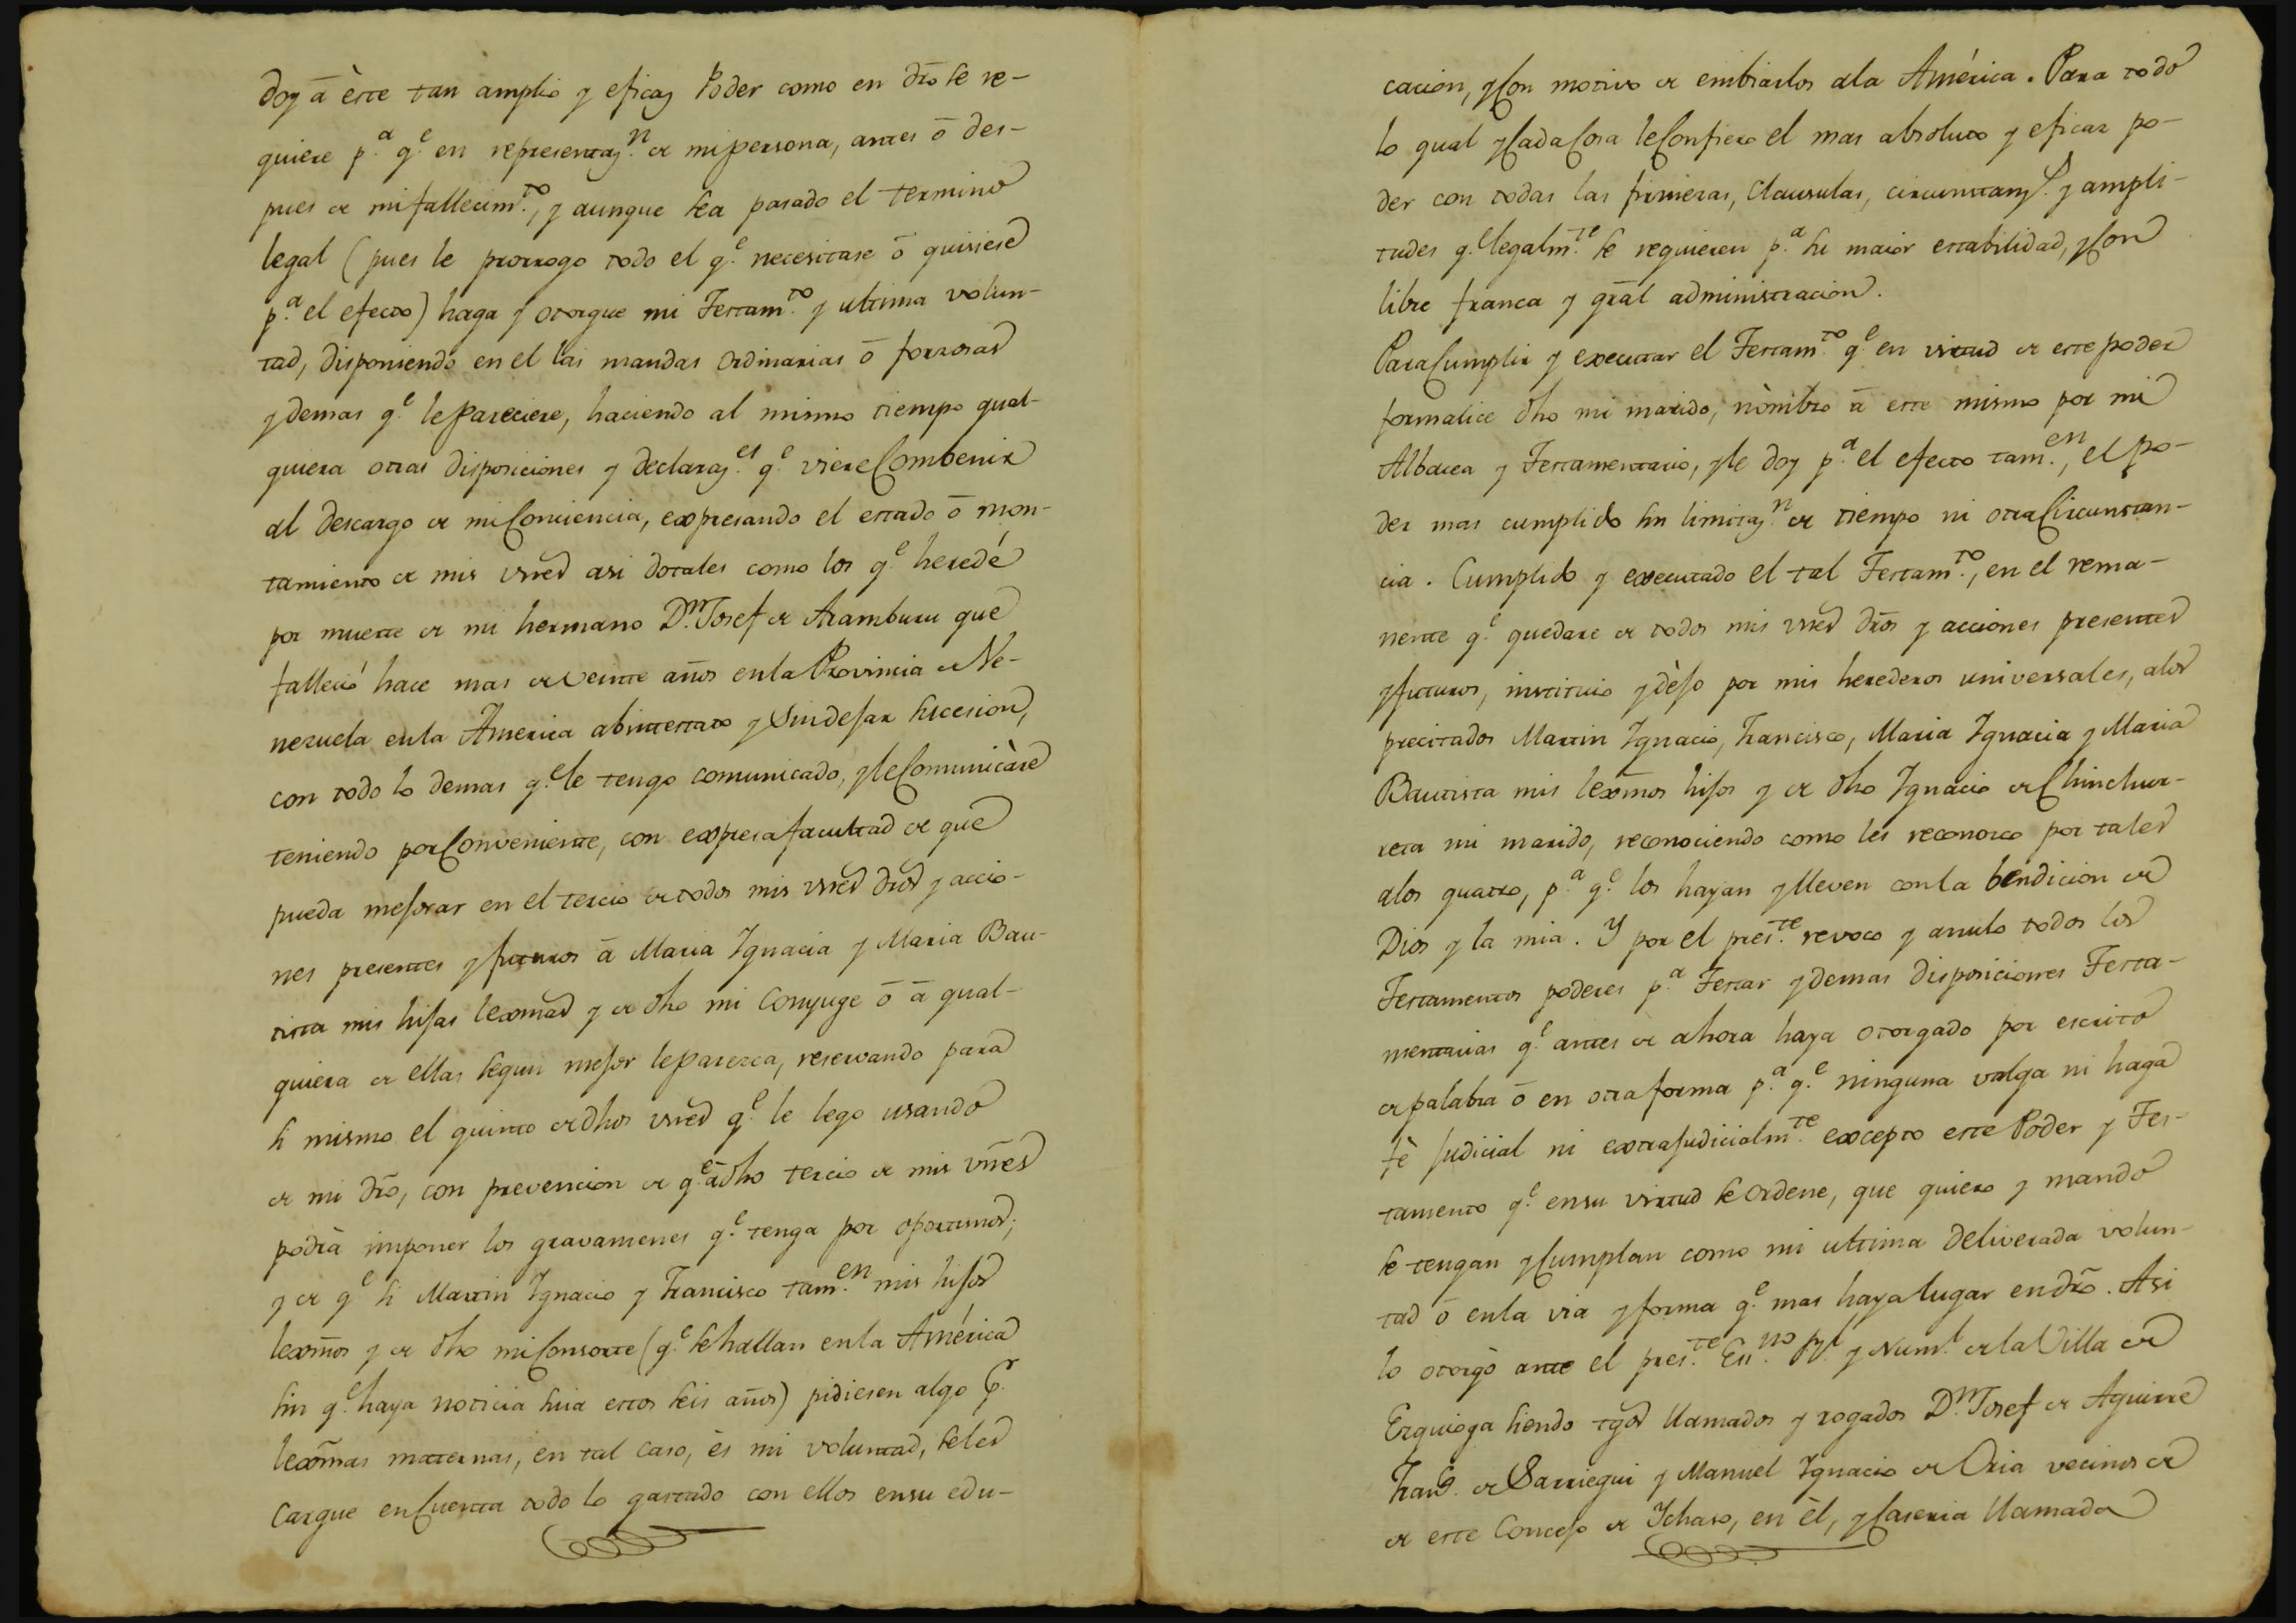 doy á èste tan amplio y eficaz Poder como en dro̅ se re-
quiere p.ª q.ᵉ en representaz.ⁿ de mi persona, antes ó des-
pues de mi fallecim.ᵗᵒ, y aunque sea pasado el termino
legal (pues le prorrogo todo el q.ᵉ necesitase ó quisiese
p.ª el efecto) haga y otorgue mi Testam.ᵗᵒ y ultima volun-
tad, disponiendo en el las mandas ordinarias ó forzosas
y demas q.ᵉ le Pareciere, haciendo al mismo tiempo qual-
quiera otras disposiciones y declaraz.ᵉˢ q.ᵉ viere Combenir
al descargo de mi Conciencia, expresando el estado ó mon-
tamiento de mis vnes̅ asi dotales como los q.ᵉ heredé
por muerte de mi hermano D.ⁿ Josef de Aramburu que
falleció hace mas de veinte años en la Provincia de Ve-
nezuela en la America abintestato y Sin dejar sucesion,
con todo lo demas q.ᵉ le tengo comunicado, y le Comunicàre
teniendo por Conveniente, con expresa facultad de que
pueda mejorar en el tercio de todos mis vnes̅ dros̅ y accio-
nes presentes y futuros á Maria Ignacia y Maria Bau-
tista mis hijas lexmas̅ y de dho mi Conyuge ó á qual-
quiera de ellas segun mejor le parezca, reservando para
si mismo el quinto de dhos vnes̅ q.ᵉ le lego usando
de mi dro̅, con prevencion de q.ᵉ á dho tercio de mis vn̅es
podrà imponer los gravamenes q.ᵉ tenga por oportunos;
y de q.ᵉ si Martin Ignacio y Francisco tam.ᵉⁿ mis hijos
lexm̅os y de dho mi Consorte (q.ᵉ se hallan en la América
sin q.ᵉ haya noticia suia estos seis años) pidiesen algo p.ʳ
lexm̅as maternas, en tal caso, ès mi voluntad, se les
Cargue en Cuenta todo lo gastado con ellos en su edu-
cacion, y Con motivo de embiarlos a la América. Para todo
lo qual y Cada Cosa le Confiero el mas absoluto y eficaz po-
der con todas las firmezas, Clausulas, circunstanz.ˢ y ampli-
tudes q.ᵉ legalm.ᵗᵉ se requieren p.ª su maior estabilidad, y Con
libre franca y gra̅l administracion.
Para Cumplir y executar el Testam.ᵗᵒ q.ᵉ en virtud de este poder
formalice dho mi marido, nòmbro á este mismo por mi
Albacea y Testamentario, y le doy p.ª el efecto tam.ᵉⁿ, el po-
der mas cumplido sin limitaz.ⁿ de tiempo ni otra Circunstan-
cia. Cumplido y executado el tal Testam.ᵗᵒ, en el rema-
nente q.ᵉ quedare de todos mis vnes̅ dro̅s y acciones presentes
y futuros, instituio y dèjo por mis herederos universales, a los
precitados Martin Ignacio, Francisco, Maria Ignacia y Maria
Bautista mis lexm̅os hijos y de dho Ignacio de Chinchur-
reta mi marido, reconociendo como les reconozco por tales
a los quatro, p.ª q.ᵉ los hayan y lleven con la bendicion de
Dios y la mia. Y por el pres.ᵗᵉ revoco y anulo todos los
Testamentos poderes p.ª Testar y demas disposiciones Testa-
mentarias q.ᵉ antes de ahora haya otorgado por escrito
de palabra ó en otra forma p.ª q.ᵉ ninguna valga ni haga
fè judicial ni extrajudicialm.ᵗᵉ excepto este Poder y Tes-
tamento q.ᵉ en su virtud se ordene, que quiero y mando
se tengan y Cumplan como mi ultima deliverada volun-
tad ó en la via y forma q.ᵉ mas haya lugar en dro̅. Asi
lo otorgò ante el pres.ᵗᵉ Ess.ⁿᵒ y Num.ˡ de la Villa de
Ezquioga siendo tgos̅ llamados y rogados D.ⁿ Josef de Aguirre
Fran.ᶜᵒ de Sarriegui y Manuel Ignacio de Oria vecinos de
de este Concejo de Ichaso, en èl, y Caseria llamada